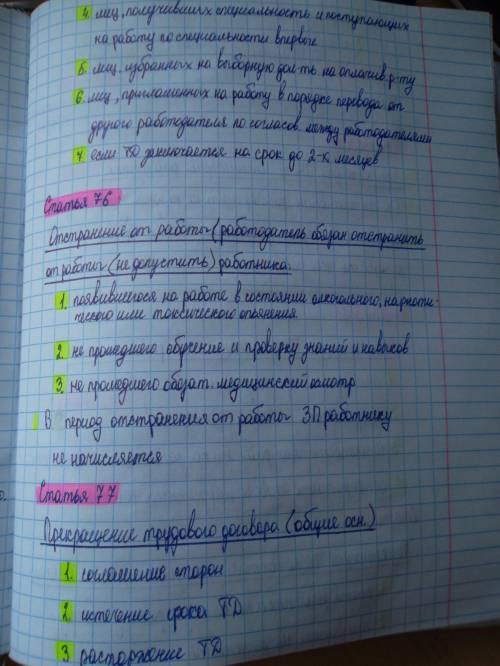 4. лиц, получивших специальность и поступающих
на работу по специальности впервые
5. лиц, избранных на выборную дол-ть на оплачив. р-ту
6. лиц, приглашенных на работу в порядке перевода от
другого работодателя по согласов. между работодателями
7. если ТД заключается на срок до 2-х месяцев
Статья 76
Отстранение от работы (работодатель обязан отстранить
от работы (не допустить) работника:
1. появившегося на работе в состоянии алкогольного, наркоти-
ческого или токсического опьянения
2. не прошедшего обучение и проверку знаний и навыков
3. не прошедшего обязат. медицинский осмотр
В период отстранения от работы ЗП работнику
не начисляется
Статья 77
Прекращение трудового договора (общие осн.)
1. соглашение сторон
2. истечение срока ТД
3. расторжение ТД